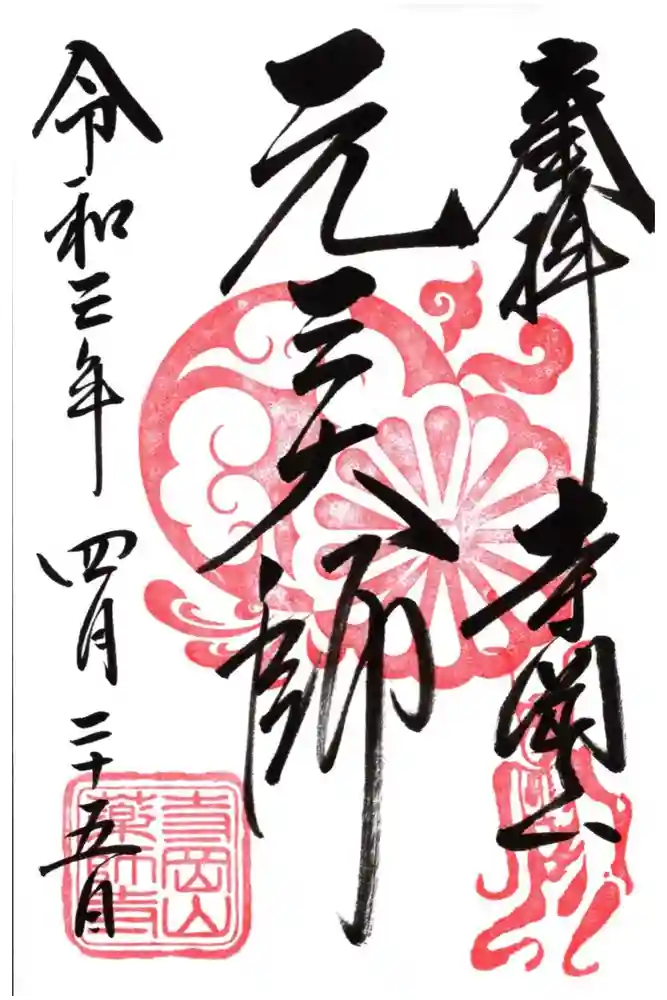 奉拝 寺岡山
元三大師
令和三年 四月 二十五日
寺岡山
薬師寺